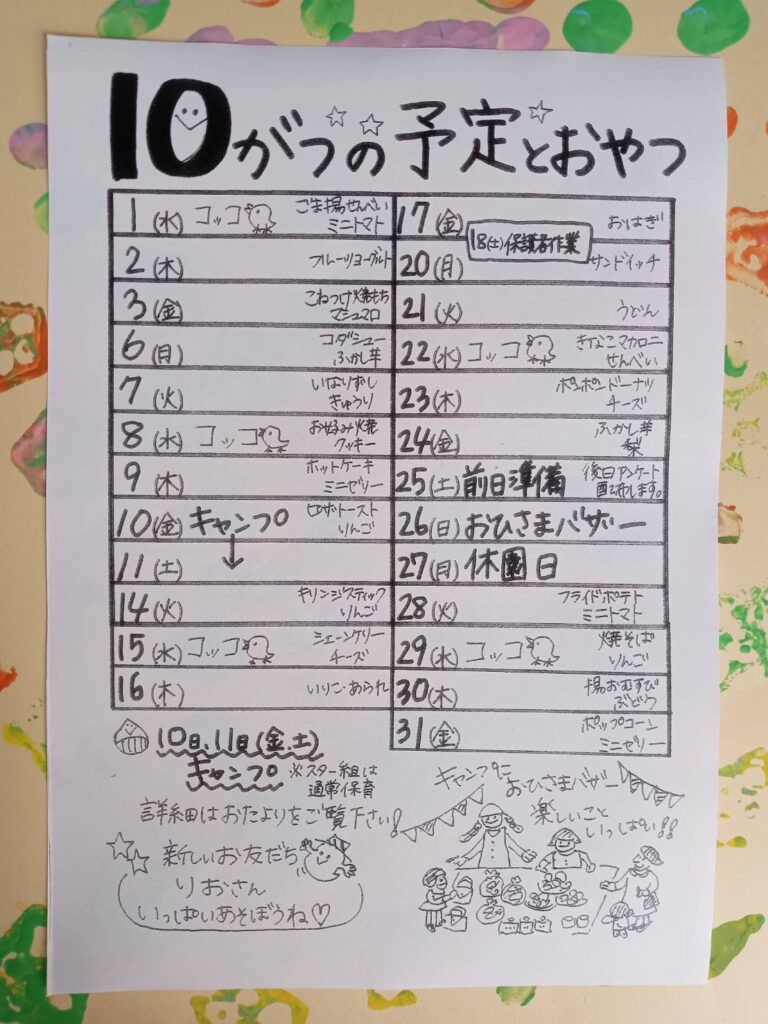 10がつの予定とおやつ
1(水) コッコ ごま揚せんべい
ミニトマト
2(木) フルーツヨーグルト
3(金) こねつけ焼もち
マシュマロ
6(月) コダシュー
ふかし芋
7(火) いなりずし
きゅうり
8(水) コッコ お好み焼
クッキー
9(木) ホットケーキ
ミニゼリー
10(金) キャンプ ピザトースト
りんご
11(土)
14(火) キリンジスティック
りんご
15(水) コッコ シェーンケリー
チーズ
16(木) いりこ・あられ
17(金) おはぎ
18(土)保護者作業
20(月) サンドイッチ
21(火) うどん
22(水) コッコ きなこマカロニ
せんべい
23(木) ポンポンドーナツ
チーズ
24(金) ふかし芋
梨
25(土) 前日準備 後日アンケート
配布します。
26(日) おひさまバザー
27(月) 休園日
28(火) フライドポテト
ミニトマト
29(水) コッコ 焼そば
りんご
30(木) 揚おむすび
ぶどう
31(金) ポップコーン
ミニゼリー
10日、11日(金、土)
キャンプ ※スター組は
通常保育
詳細はおたよりをご覧下さい!
新しいお友だち
りおさん
いっぱいあそぼうね♡
キャンプに
おひさまバザー
楽しいこと
いっぱい!!